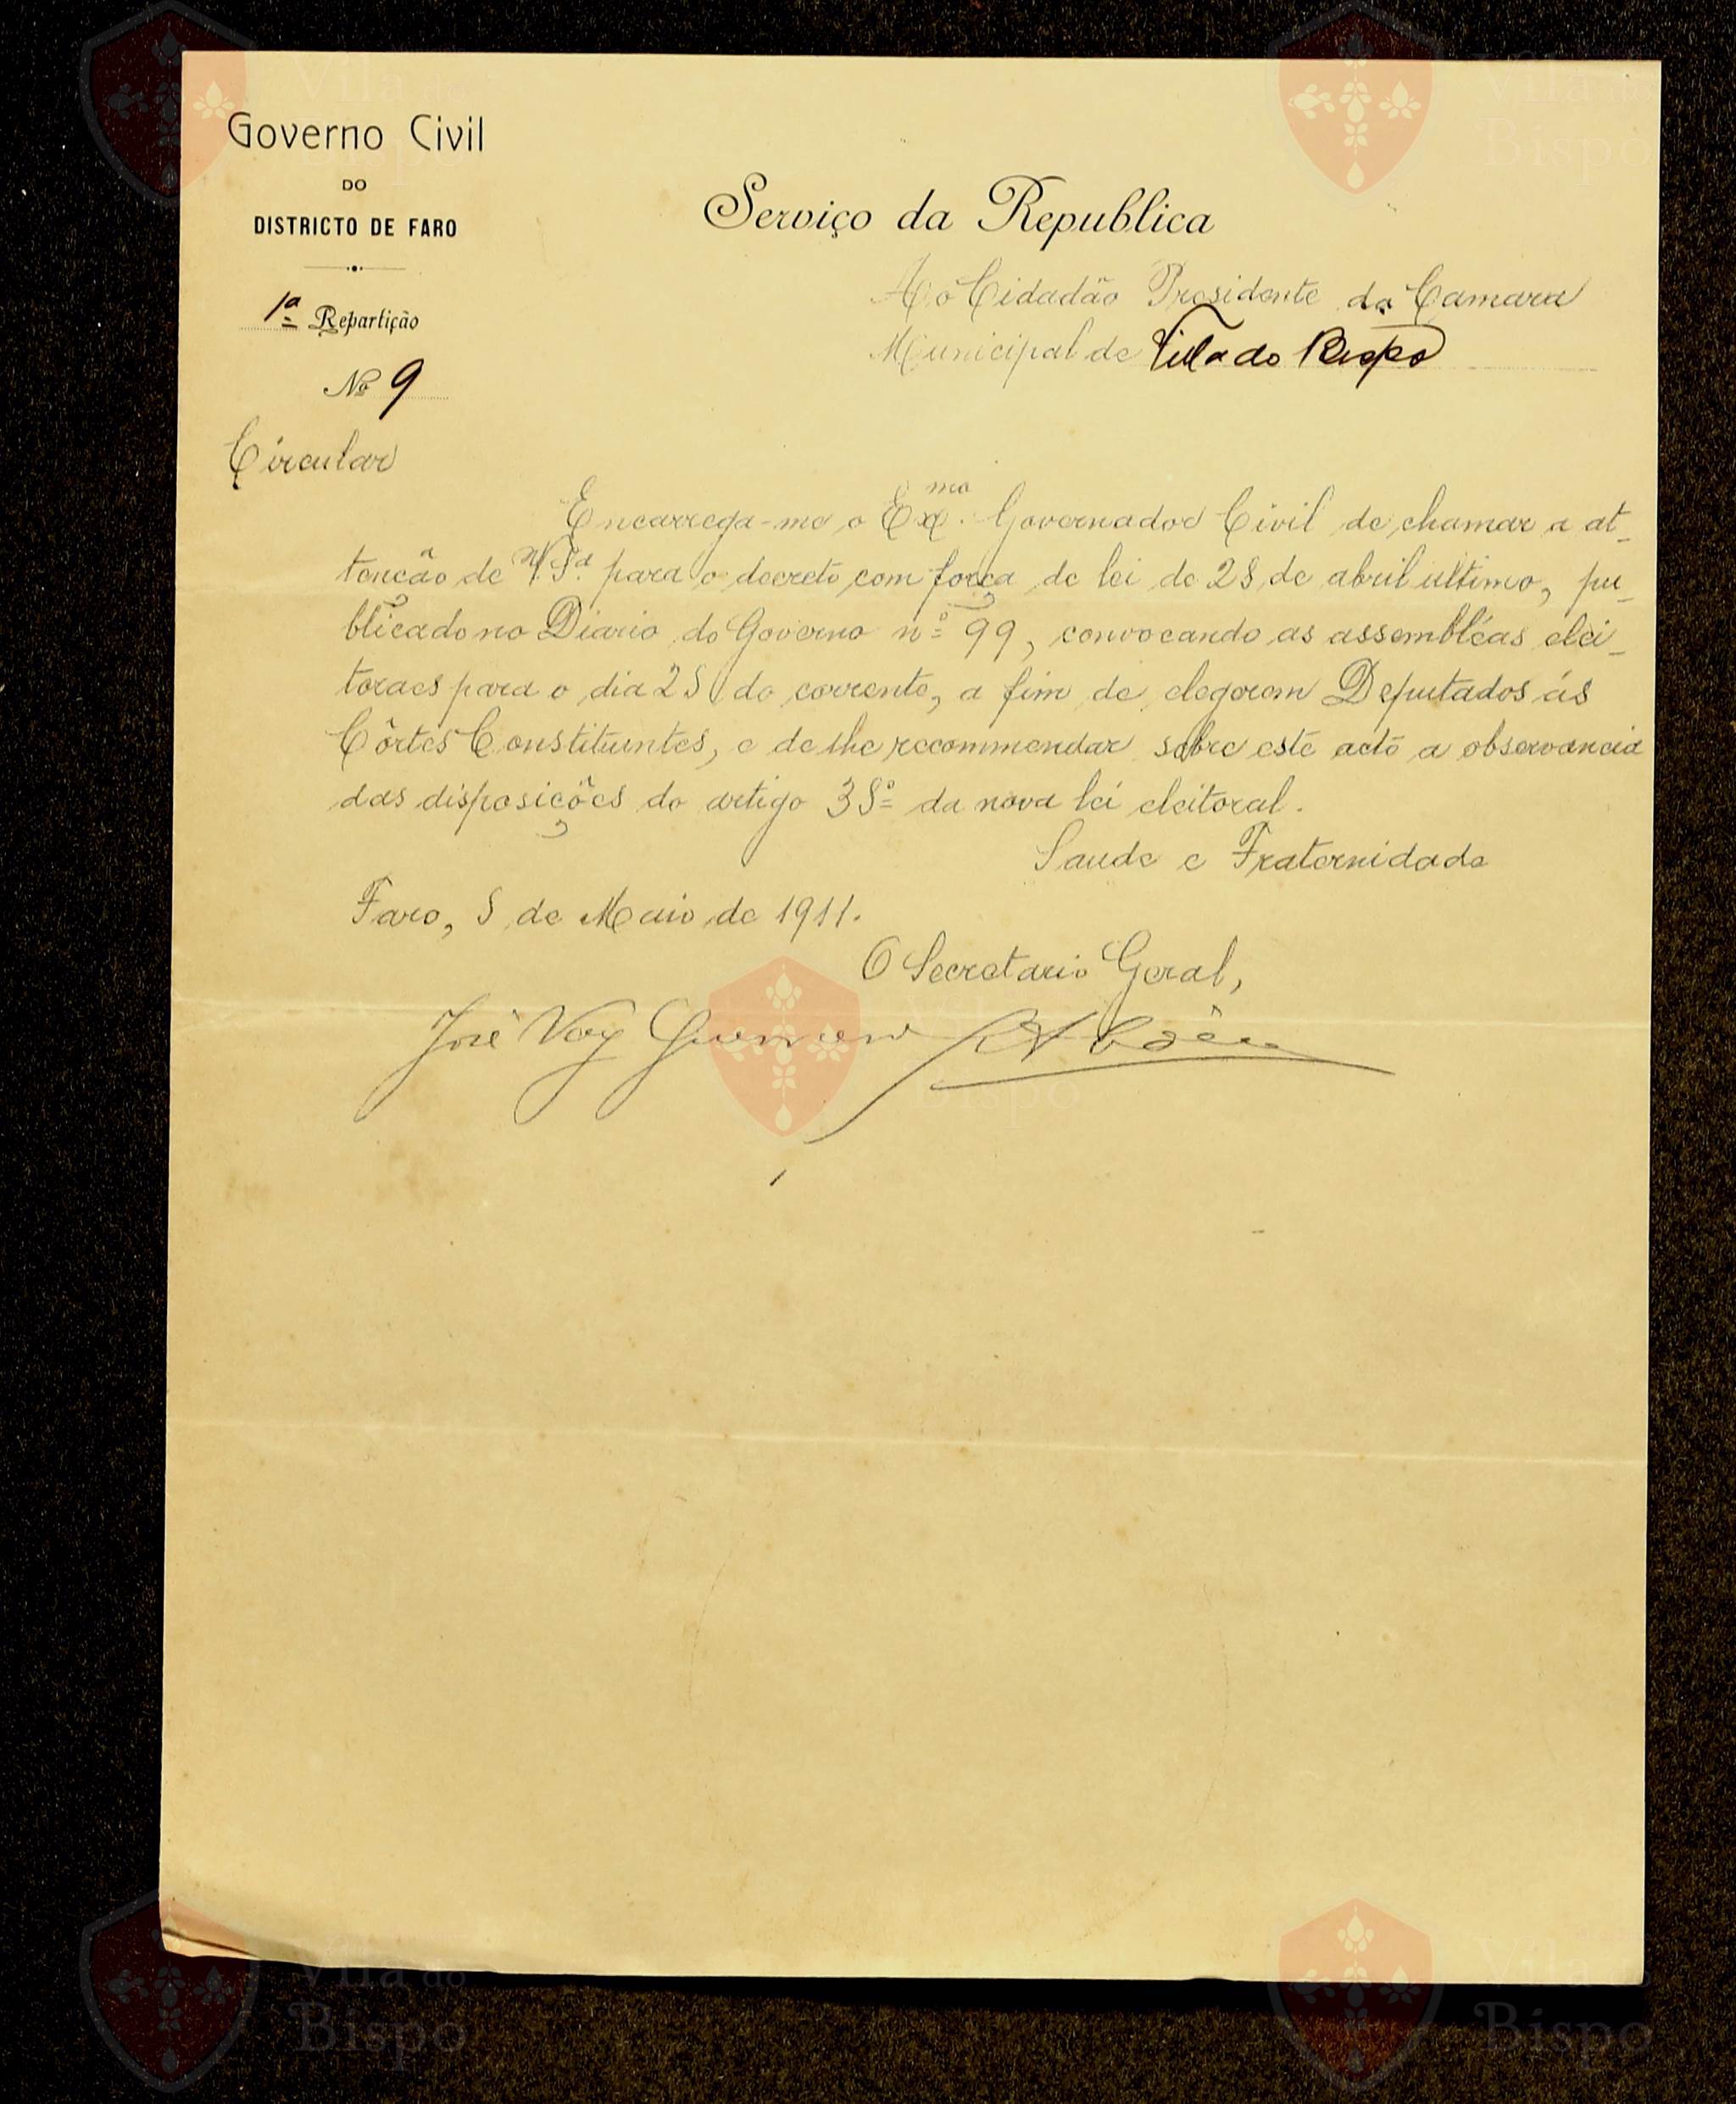 Governo Civil
DO
DISTRICTO DE FARO
1ª Repartição
Nº 9
Circular
Serviço da Republica
Ao Cidadão Presidente da Camara
Municipal de Villa do Bispo
Encarrega-me o Exmo. Governador Civil de chamar a at-
tenção de V. Sª. para o decreto com força de lei de 28 de abril ultimo, pu-
blicado no Diario do Governo nº 99, convocando as assembléas elei-
toraes para o dia 28 do corrente, a fim de elegerem Deputados ás
Côrtes Constituintes, e de lhe recommendar sobre este acto a observancia
das disposições do artigo 38º da nova lei eleitoral.
Saude e Fraternidade
Faro, 8 de Maio de 1911.
O Secretario Geral,
José Vaz Guerreiro
Vila do
Bispo
Vila do
Bispo
Vila do
Bispo
Vila do
Bispo
Vila do
Bispo